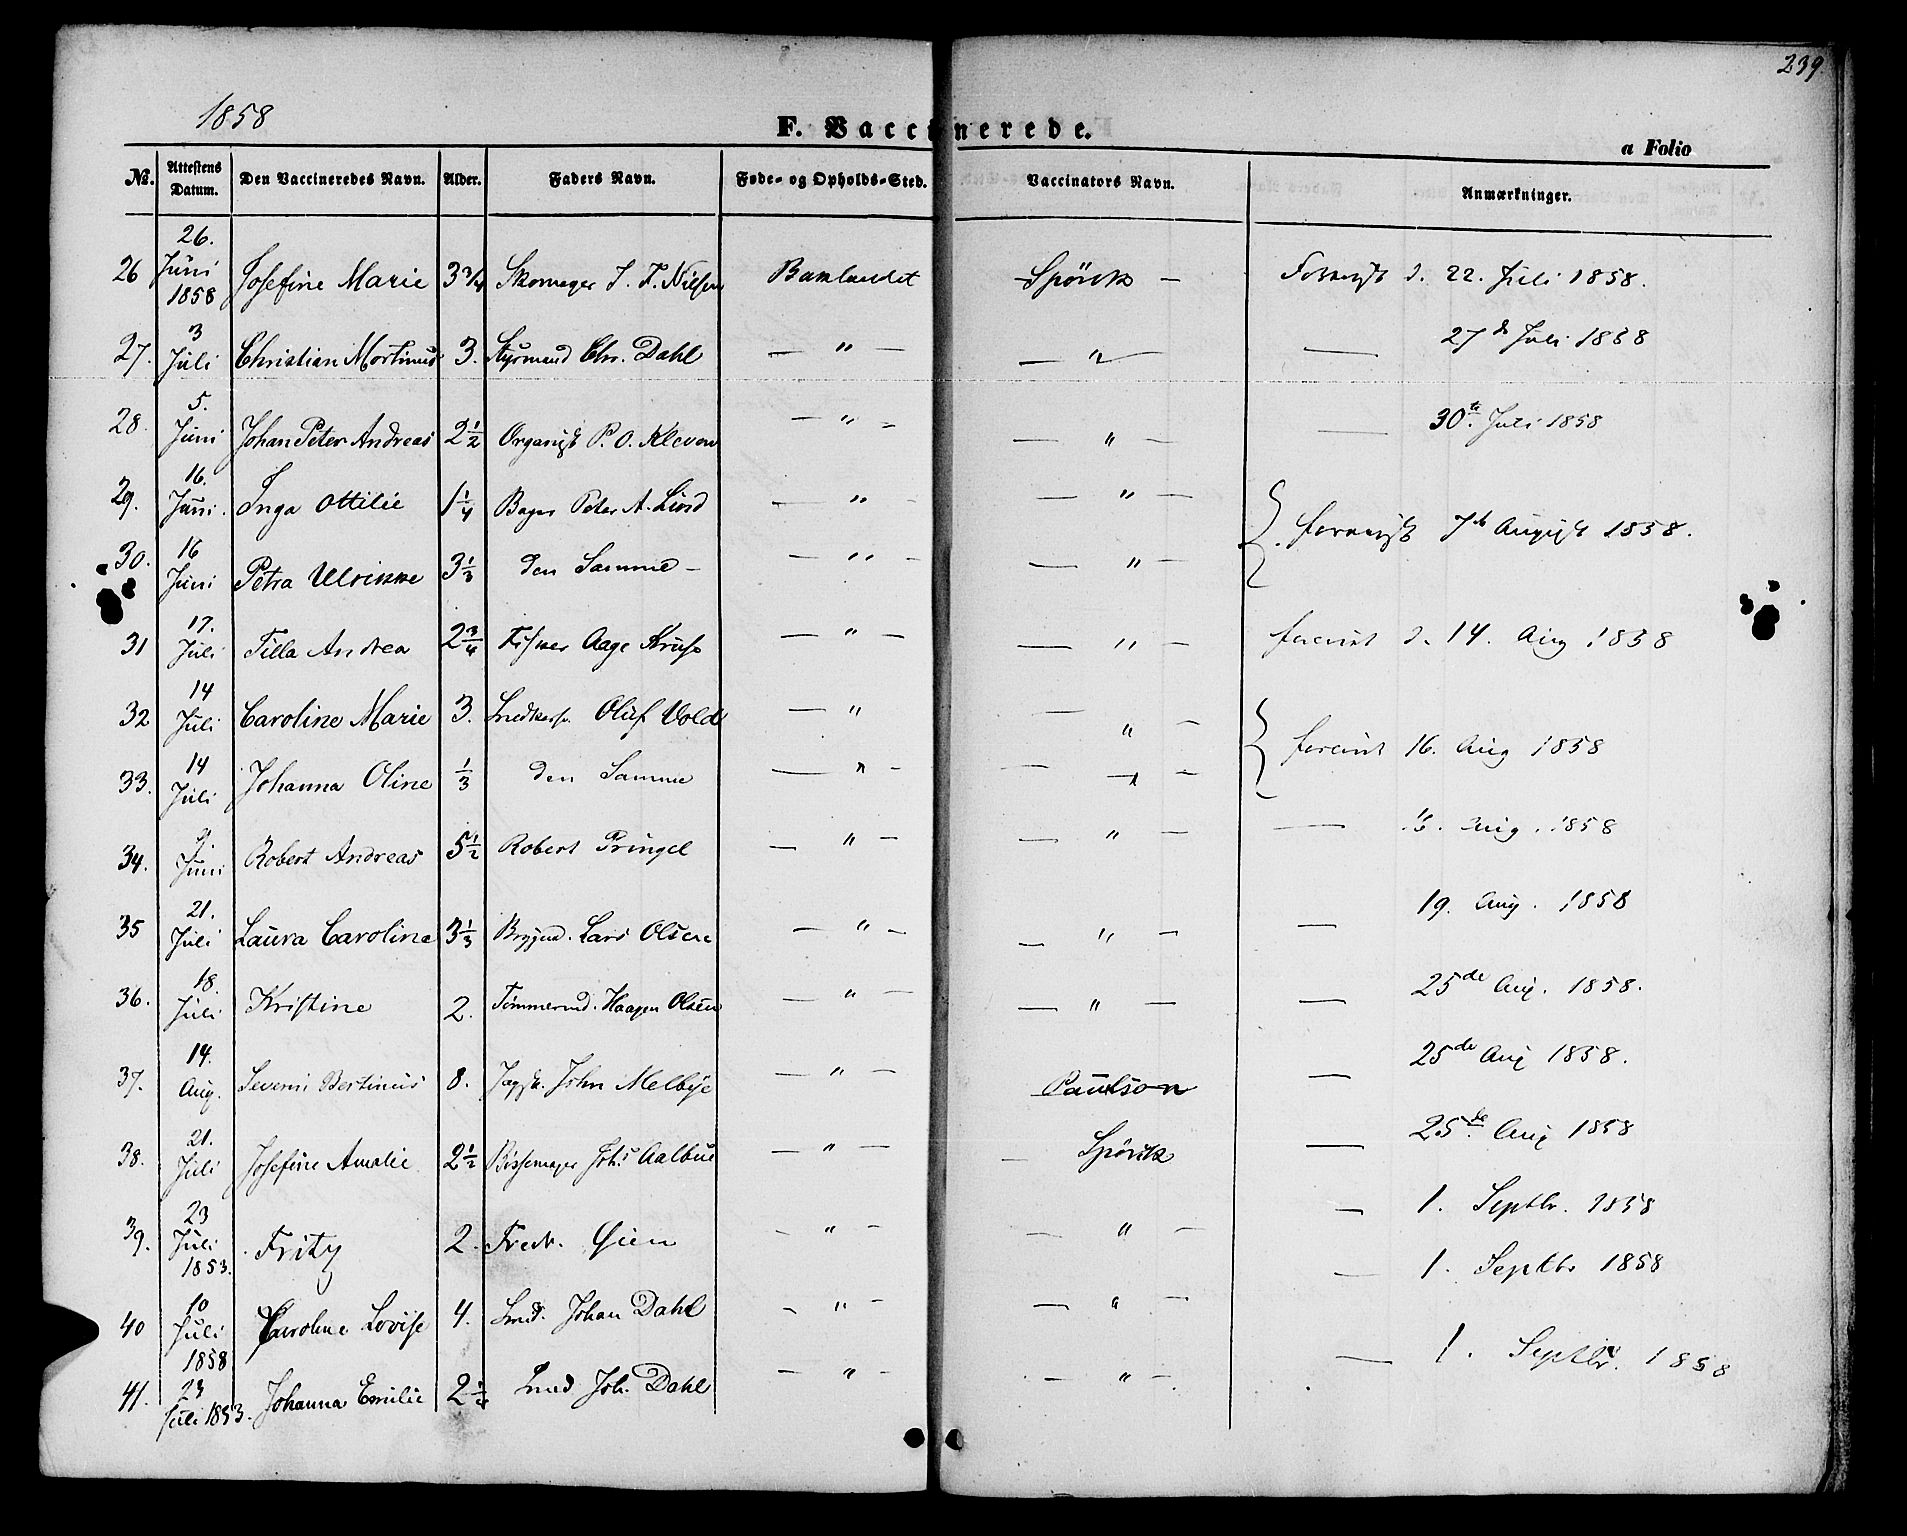 239.
1858
F. Vaccinerede.
a Folio
№. Attestens Datum. Den Vaccineredes Navn. Alder. Faders Navn. Føde- og Opholds-Sted. Vaccinators Navn. Anmærkninger.
26 26. Juni 1858 Josefine Marie 3 3/4 Skomager J. F. Nilsen Baklandet Spörck — d. 22. Juli 1858.
27. 3 Juli Christian Mortinus 3. Styrmand Chr. Dahl — " — — " — — 27de Juli 1858
28. 5. Juni Johan Peter Andreas 2 1/2 Organist P. O. — " — — " — — 30te Juli 1858
29. 16. Juni. Inga Ottilie 1 1/4 Bager Peter A. Lind — " — — " — forevist 7de August 1858.
30. 16 Juni Petra Ulrikke 3 1/3 den Samme — — " — — " —
31 17. Juli Tilla Andrea 2 3/4 Fisker Aage Kruse — " — — " — forevist d. 14. Aug 1858
32 14 Juli Caroline Marie 3. Oluf Vold — " — " — forevist 16. Aug 1858
33. 14 Juli Johanna Oline 1/3 den Samme — " — — " —
34. 9. Juni Robert Andreas 5 1/2 Robert Pringel — " — — " — — 16. Aug. 1858
35 21. Juli Laura Caroline 3 1/3 Lars Olsen — " — — " — — 19. Aug. 1858
36. 18. Juli Kristine 2. Tømmermd. Haagen Olsen — " — — " — — 25de Aug. 1858.
37. 14. Aug. Severin Bertinus 8. John Melbye — " — Paulson — 25de Aug 1858.
38. 21. Juli Josefine Amalie 2 1/2 Bøssemager Johs Aalbue — " — — Spörck — 25de Aug 1858
39. 23 Juli 1853. Fritz 2. Fredr. Øien — " — — " — — 1. Septbr. 1858
40 10 Juli 1858 Caroline Lovise 4. Smed. Johan Dahl — " — — " — — 1. Septbr 1858
41. 23 Juli 1853. Johanna Emilie 2 1/2 Smed Joh. Dahl — " — — " — — 1. Septbr. 1858